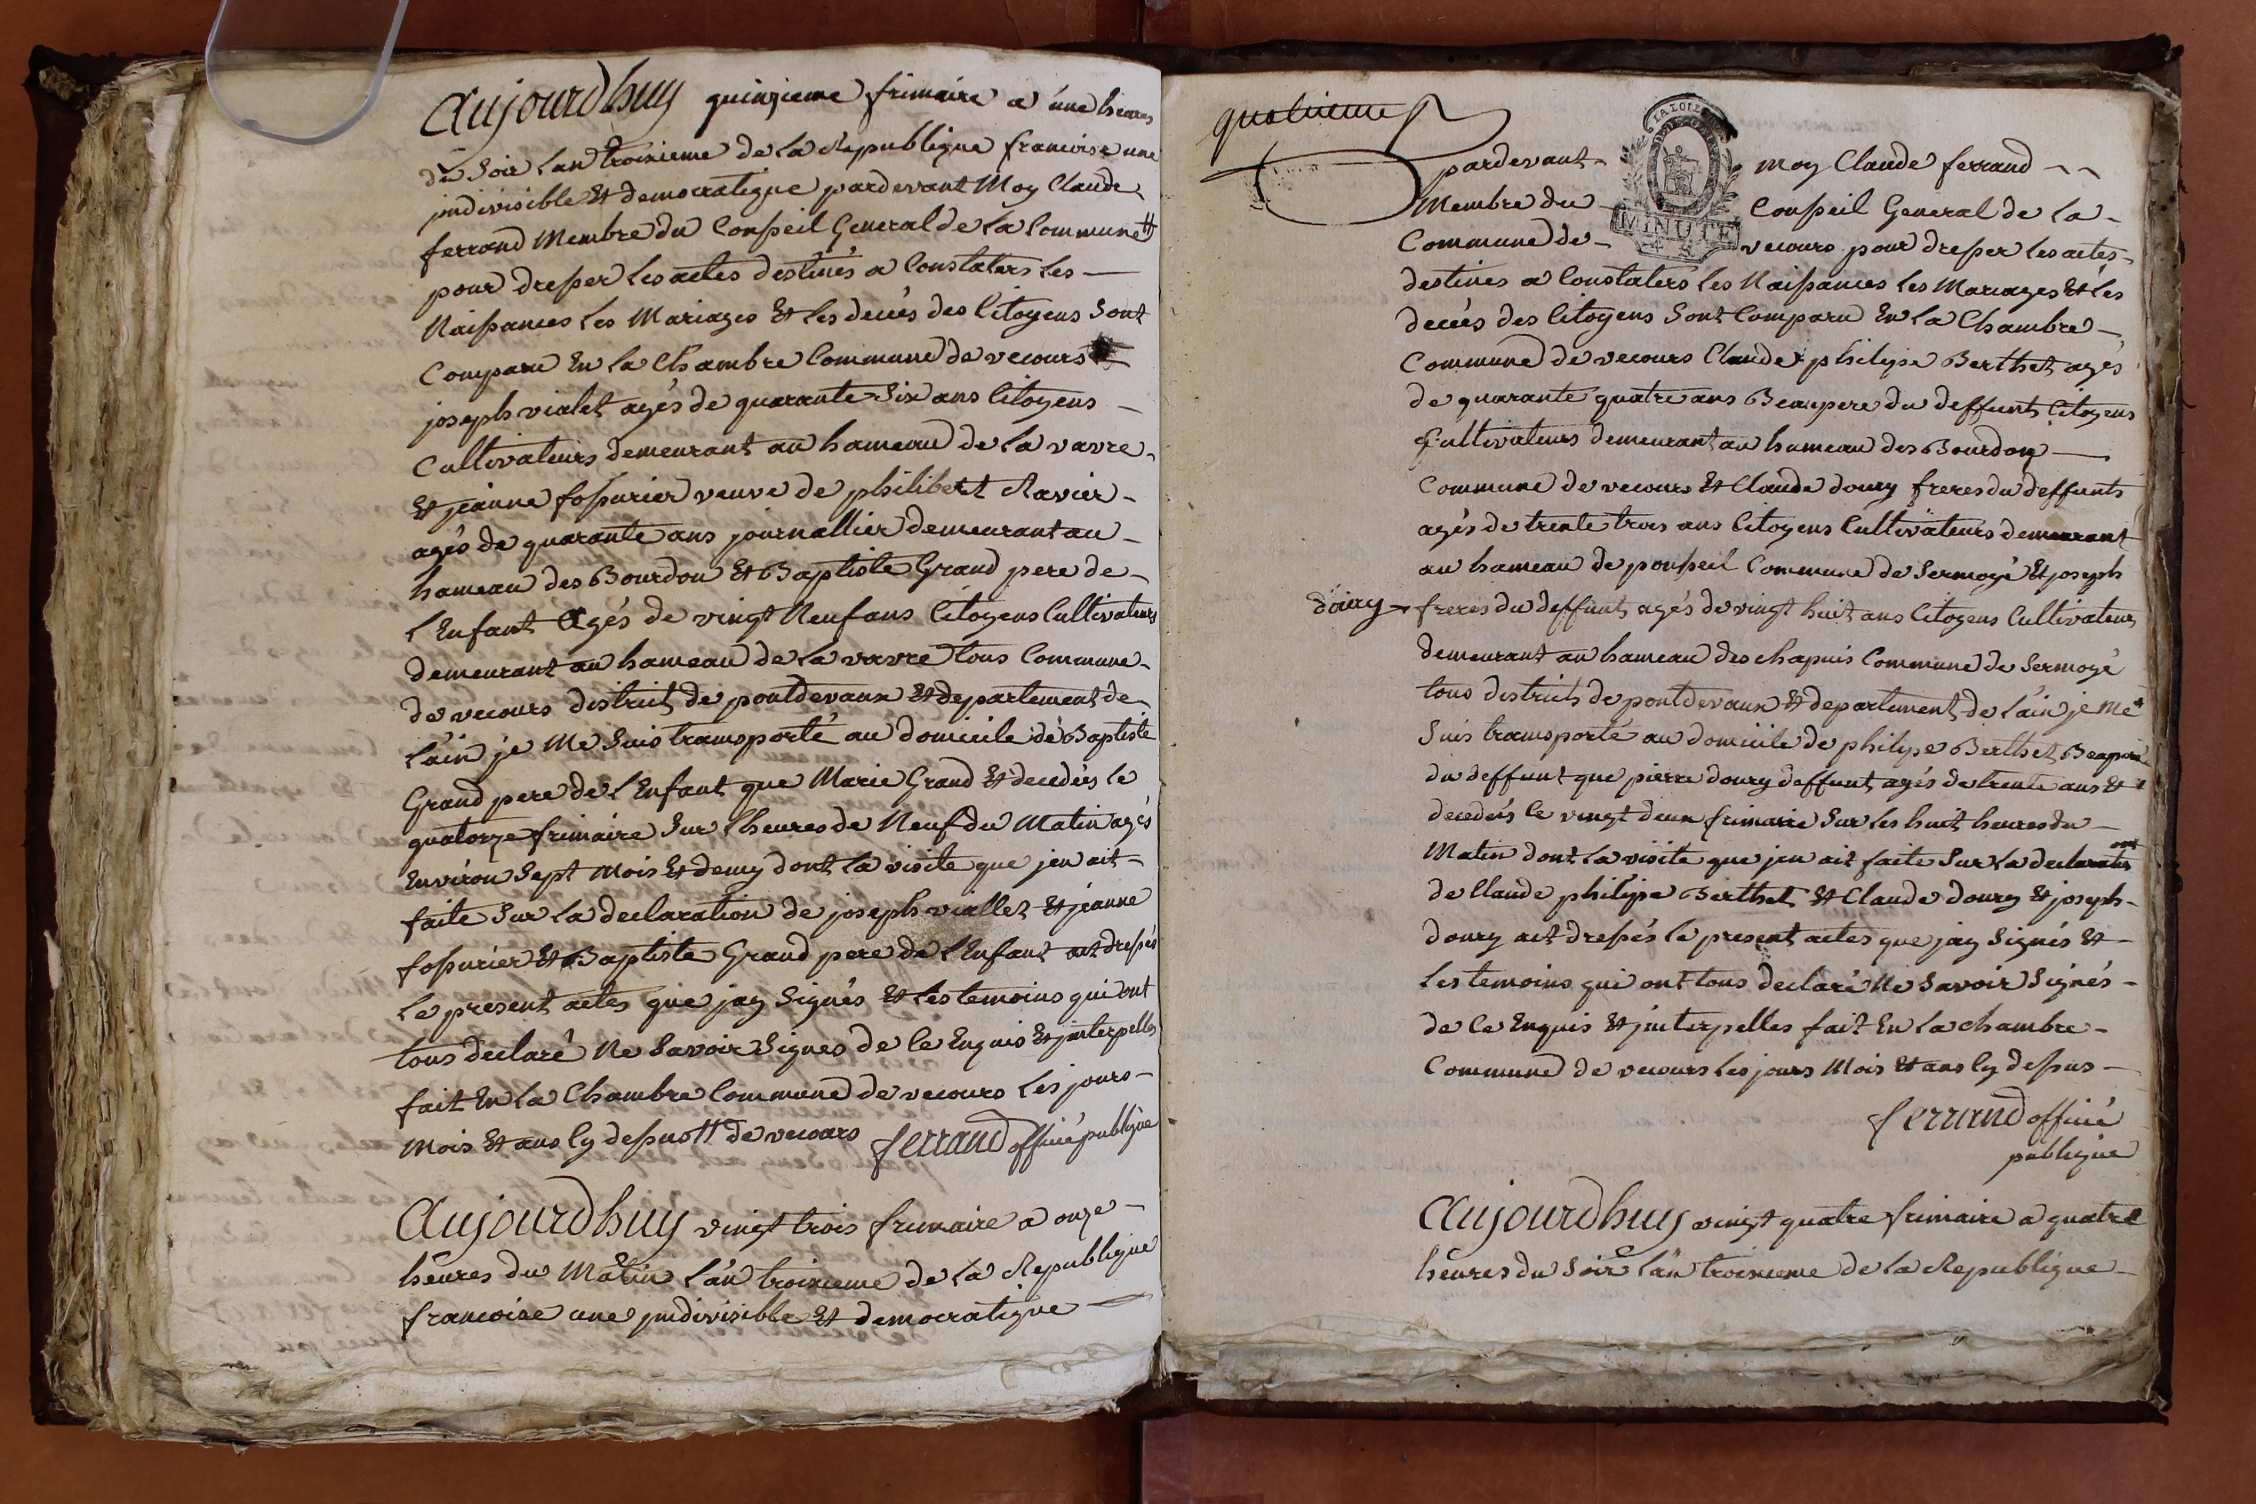 Aujourdhuy quinzieme frimaire a une heures
du Soir Lan troisieme de La Republique francoise une
jndivisible Et democratique pardevant Moy Claude
ferrand Membre du Conseil General de La Commune #
pour dresser Les actes destinés a Constaters Les
Naissances Les Mariages Et Les decès des Citoyens Sont
Comparu En La Chambre Commune de vecours
joseph vialet agés de quarante Six ans Citoyens
Cultivateurs demeurant au hameau de La vavre
Et jeanne fossurier veuve de philibert Ravier
agés de quarante ans journallier demeurant au
hameau des Bourdon Et Baptiste Grand pere de
L'Enfant Agés de vingt Neuf ans Citoyens Cultivateurs
demeurant au hameau de La vavre tous Commune
de vecours district de pontdevaux Et departement de
L'ain je Me Suis transporté au domicile de Baptiste
Grand pere de L'Enfant que Marie Grand Et decedés Le
quatorze frimaire Sur Lheures de Neuf du Matin agés
Environ Sept Mois Et demy dont La visite que jen ait
faite Sur La declaration de joseph viallet Et jeanne
fossurier Et Baptiste Grand pere de L'Enfant ait dressés
Le present actes que jay Signés Et Les temoins qui ont
tous declaré Ne Savoir Signés de Ce Enquis Et jnterpelles
fait En La Chambre Commune de vecours Les jours
Mois Et ans Cy dessus # de vecours ferrand officié publique
Aujourdhuy vingt trois frimaire a onze
heures du Matin L'an troisieme de La Republique
francoise une jndivisible Et democratique
quatrieme
pardevant Moy Claude ferrand
Membre du Conseil General de La
MINUTE
Commune de vecours pour dresser Les actes
destines a Constaters Les Naissances Les Mariages Et Les
decès des Citoyens Sont Comparu En La Chambre
Commune de vecours Claude philipe Berthet agés
de quarante quatre ans Beaupere du deffunts Citoyens
Cultivateurs demeurant au hameau des Bourdon
Commune de vecours Et Claude doury freres du deffunts
agés de trente trois ans Citoyens Cultivateurs demeurant
au hameau de ponseil Commune de Sermoyé Et joseph
doury freres du deffunt agés de vingt huit ans Citoyens Cultivateurs
demeurant au hameau des chapuis Commune de Sermoyé
tous districts de pontdevaux Et departement de L'ain je Me
Suis transporté au domicile de philipe Berthet Beaupere
du deffunt que pierre doury deffunt agés de trente ans Et
decedés Le vingt deux frimaire Sur Les huit heures du
Matin dont La visite que jen ait faite Sur La declaration
de Claude philipe Berthet Et Claude doury Et joseph
doury ait dressés Le present actes que jay Signés Et
Les temoins qui ont tous declaré Ne Savoir Signés
de Ce Enquis Et jnterpelles fait En La chambre
Commune de vecours Les jours Mois Et ans Cy dessus
ferrand officié
publique
Aujourdhuy vingt quatre frimaire a quatre
heures du Soir L'an troisieme de La Republique